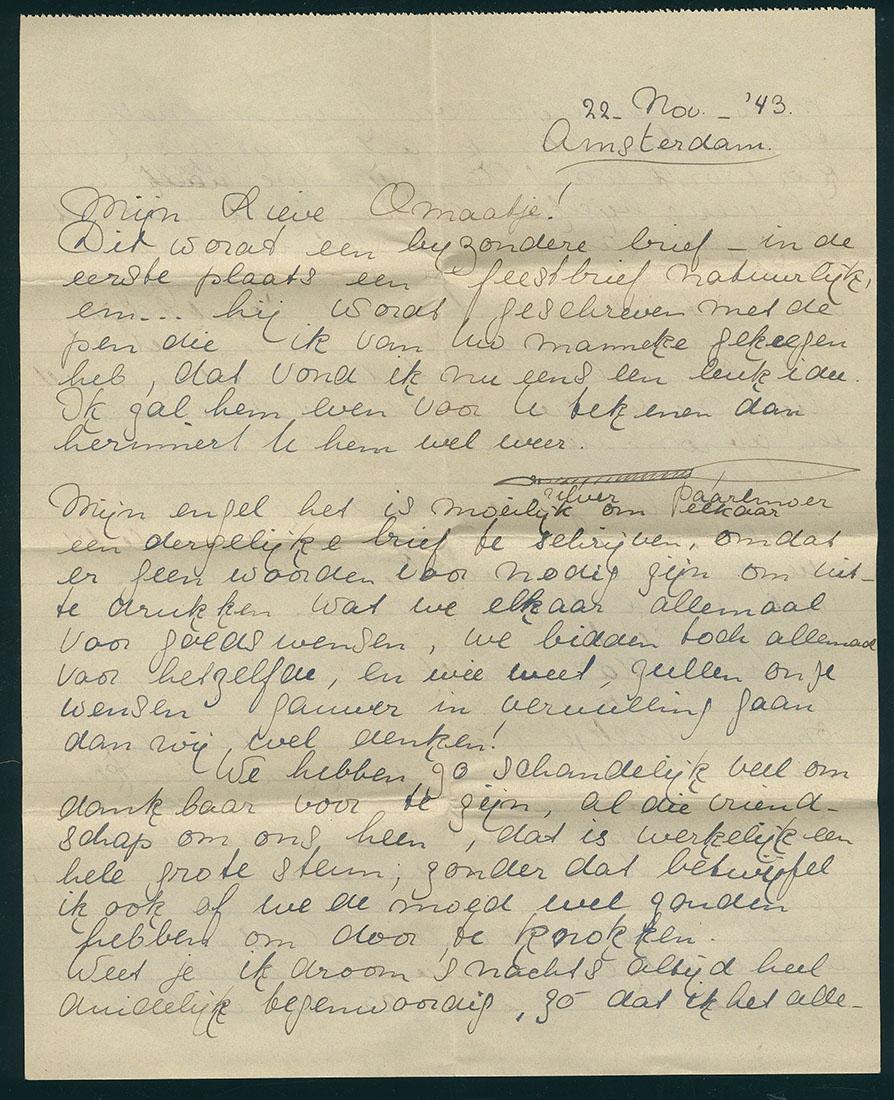 22 - Nov. - '43.
Amsterdam.
Mijn Lieve Omaatje!
Dit wordt een byzondere brief - in de
eerste plaats een feestbrief natuurlijk,
en... hij wordt geschreven met de
pen die ik van uw manneke gekregen
heb, dat vond ik nu eens een leuk idee.
Ik zal hem even voor U tekenen dan
herinnert U hem wel weer.
zilver paarlmoer
Mijn engel het is moeilijk om elkaar
een dergelijke brief te schrijven, omdat
er geen woorden voor nodig zijn om uit-
te drukken wat we elkaar allemaal
voor goeds wensen, we bidden toch allemaal
voor hetzelfde, en wie weet, zullen onze
wensen gauwer in vervulling gaan
dan wij wel denken!
We hebben zo schandelijk veel om
dankbaar voor te zijn, al die vriend-
schap om ons heen, dat is werkelijk een
hele grote steun, zonder dat betwijfel
ik ook of we de moed wel zouden
hebben om door te knokken.
Weet je ik droom s'nachts altijd heel
duidelijk tegenwoordig, zó dat ik het alle-